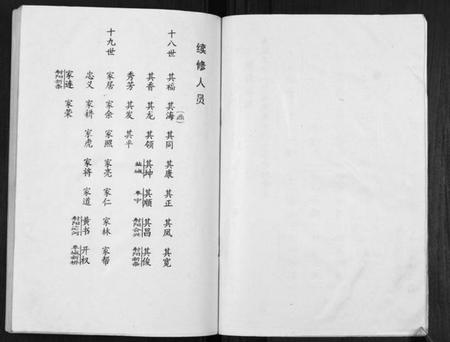 续修人员
十八世
其福 其海 其同 其康 其正 其凤 其宽
其香 其龙 其领 其坤 其顺 其昌 其俊
秀芳 其发 其平
十九世
家居 家余 家照 家亮 家仁 家林 家帮
忠义 家耕 家虎 家将 家道 黄书 开权
家连 家荣